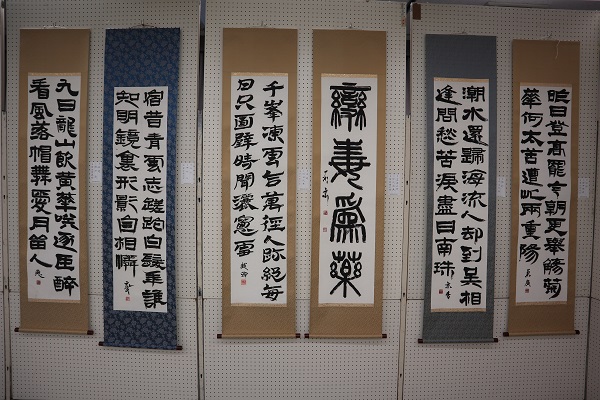 昨日登高罷今朝更舉觴菊
華何太苦遭此兩重陽
潮水還歸海流人却到吳相
逢問愁苦淚盡日南珠
變毒爲藥
千峯凍雪合萬徑人跡絕每
日只面壁時聞灑窻雪
宿昔青雲志蹉跎白髮年誰
知明鏡裏形影自相憐
九日龍山飲黃華笑逐臣醉
看風落帽舞愛月留人